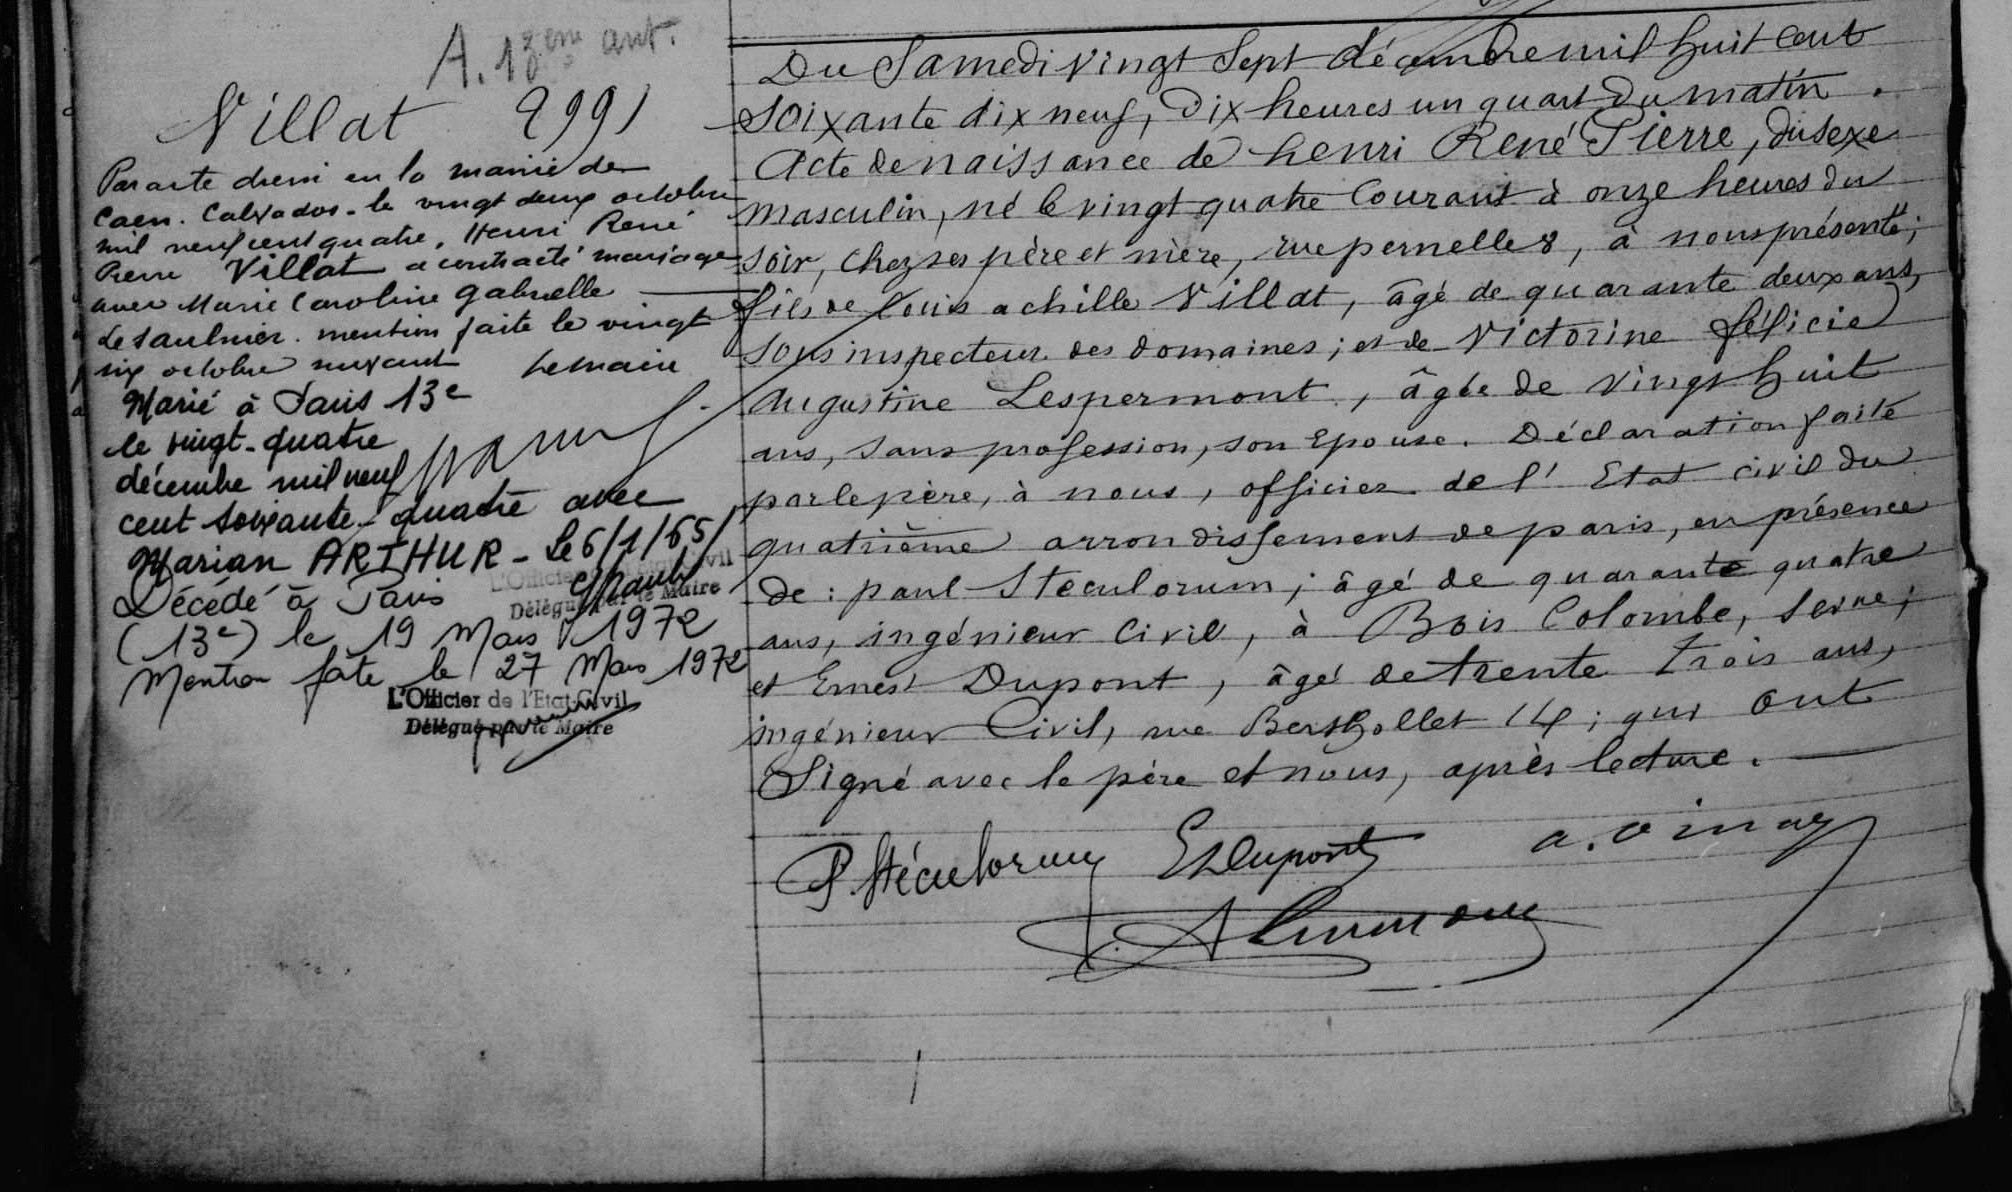 A. 13eme ant.
Villat 2991
Par acte dressé en la mairie de
Caen. Calvados. le vingt deux octobre
mil neuf cent quatre, Henri René
Pierre Villat a contracté mariage
avec Marie Caroline Gabrielle
Lesaulnier. mention faite le vingt
six octobre suivant Lemaire
Marié à Paris 13e
le vingt-quatre
décembre mil neuf
cent soixante-quatre avec
Marian ARTHUR - Le 6/1/65
L'Officier de l'Etat Civil
Délégué par le Maire
Décédé à Paris
(13e) le 19 Mars 1972
Mention faite le 27 Mars 1972
L'Officier de l'Etat-Civil
Délégué par le Maire
Du Samedi vingt Sept décembre mil huit cent
soixante dix neuf, Dix heures un quart du matin.
Acte de naissance de henri René Pierre, du sexe
masculin, né le vingt quatre Courant à onze heures du
soir, chez ses père et mère, rue pernelle 8, à nous présenté;
fils de Louis achille Villat, âgé de quarante deux ans,
sous inspecteur des domaines; et de Victorine félicie
Augustine Lespermont, âgée de vingt huit
ans, sans profession, son Epouse. Déclaration faite
par le père, à nous, officier de l'Etat civil du
quatrième arrondissement de paris, en présence
de : paul Steculorum; âgé de quarante quatre
ans, ingénieur Civil, à Bois Colombe, seine;
et Ernest Dupont, âgé de trente trois ans,
ingénieur Civil, rue Berthollet 14; qui ont
Signé avec le père et nous, après lecture.
P. Stéculorum E Dupont